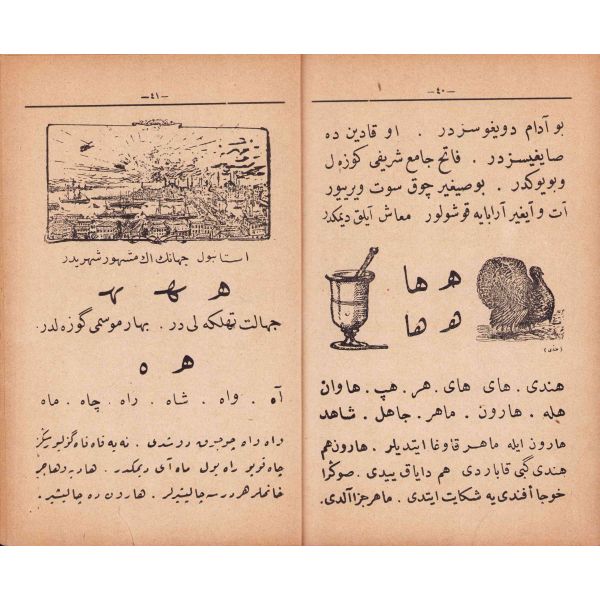 — ٤٠ —
بو آدام دويغوسزدر . او قادين ده
صايغيسزدر . فاتح جامع شريفى كوزه ل
وبويوكدر . بوصيغير چوق سوت ويرييور
آت و آيغير آرابايه قوشولور . معاش آيلق ديمكدر
هـ ها
هـ ها
(هندى)
هندى . هاى هاى . هر . هپ . هاوان
هله . هارون . ماهر . جاهل . شاهد
هارون ايله ماهر قاوغا ايتديلر . هارون هم
هندى گبى قاباردى هم داياق ييدى . صوڭرا
خوجا أفندى يه شكايت ايتدى . ماهر جزا آلدى .
— ٤١ —
استانبول جهانك اڭ مشهور شهريدر
هـ ـهـ ـهـ
جهالت تهلكه لى در . بهار موسمى گوزه لدر .
ه ه
آه . واه . شاه . راه . چاه . ماه
واه واه چوجوق دوشدى . نه يه قاه قاه گولييورسڭز
چاه قويو راه يول ماه آى ديمكدر .
خانملر هر درسه چاليشيرلر . هارون ده چاليشير .